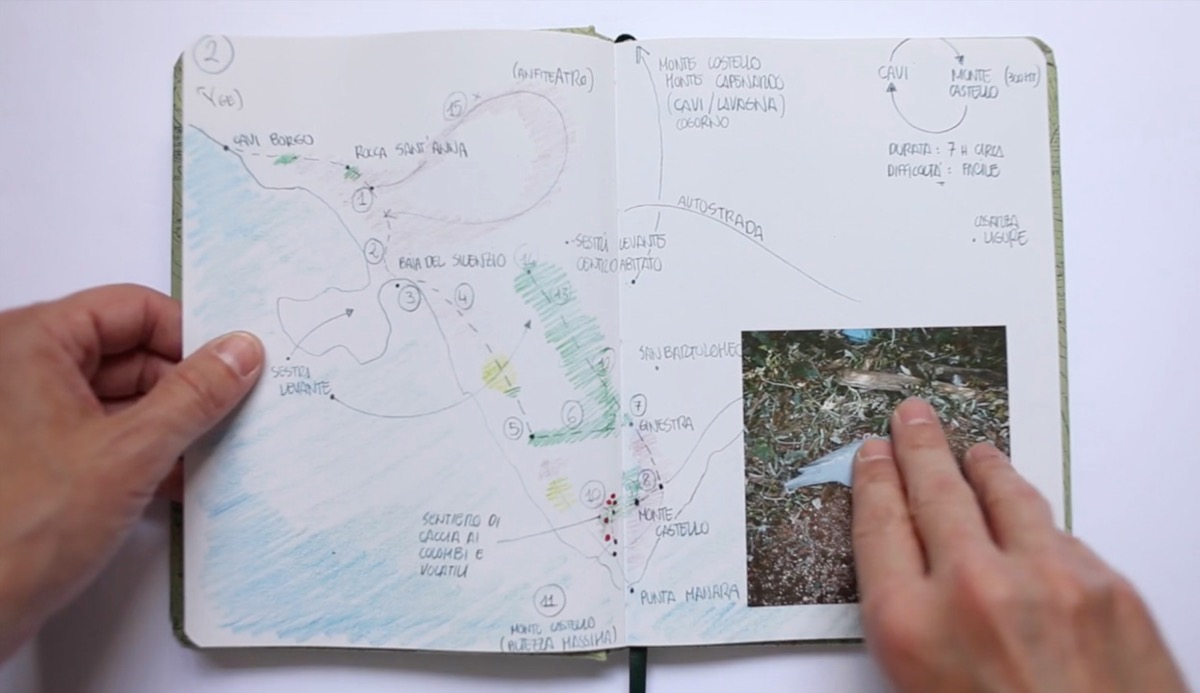 2
(GE)
CAVI BORGO
ROCCA SANT'ANNA
(ANFITEATRO)
15
1
2
BAIA DEL SILENZIO
3
4
14
13
12
SESTRI
LEVANTE
5
6
10
SENTIERO DI
CACCIA AI
COLOMBI E
VOLATILI
11
MONTE CASTELLO
(ALTEZZA MASSIMA)
MONTE COSTELLO
MONTE CAPENARDO
(CAVI/LAVAGNA)
COGORNO
CAVI
MONTE (300MT)
CASTELLO
DURATA: 7 H CIRCA
DIFFICOLTÀ: FACILE
AUTOSTRADA
SESTRI LEVANTE
CENTRO ABITATO
LIGURE
SAN BARTOLOMEO
7
GINESTRA
8
MONTE
CASTELLO
PUNTA MANARA